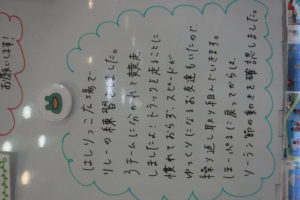 お願いします!
はしりっこ広場で
リレーの練習をしました。
3チームに分かれ 競走
しました(ニ)トラックを走ることに
慣れておらず、スピードが
ゆっくりになるお友達もいたので
繰り返し取り組んでいきます。
ほーぷるに戻ってからは、
ソーラン節の動きを確認しました。